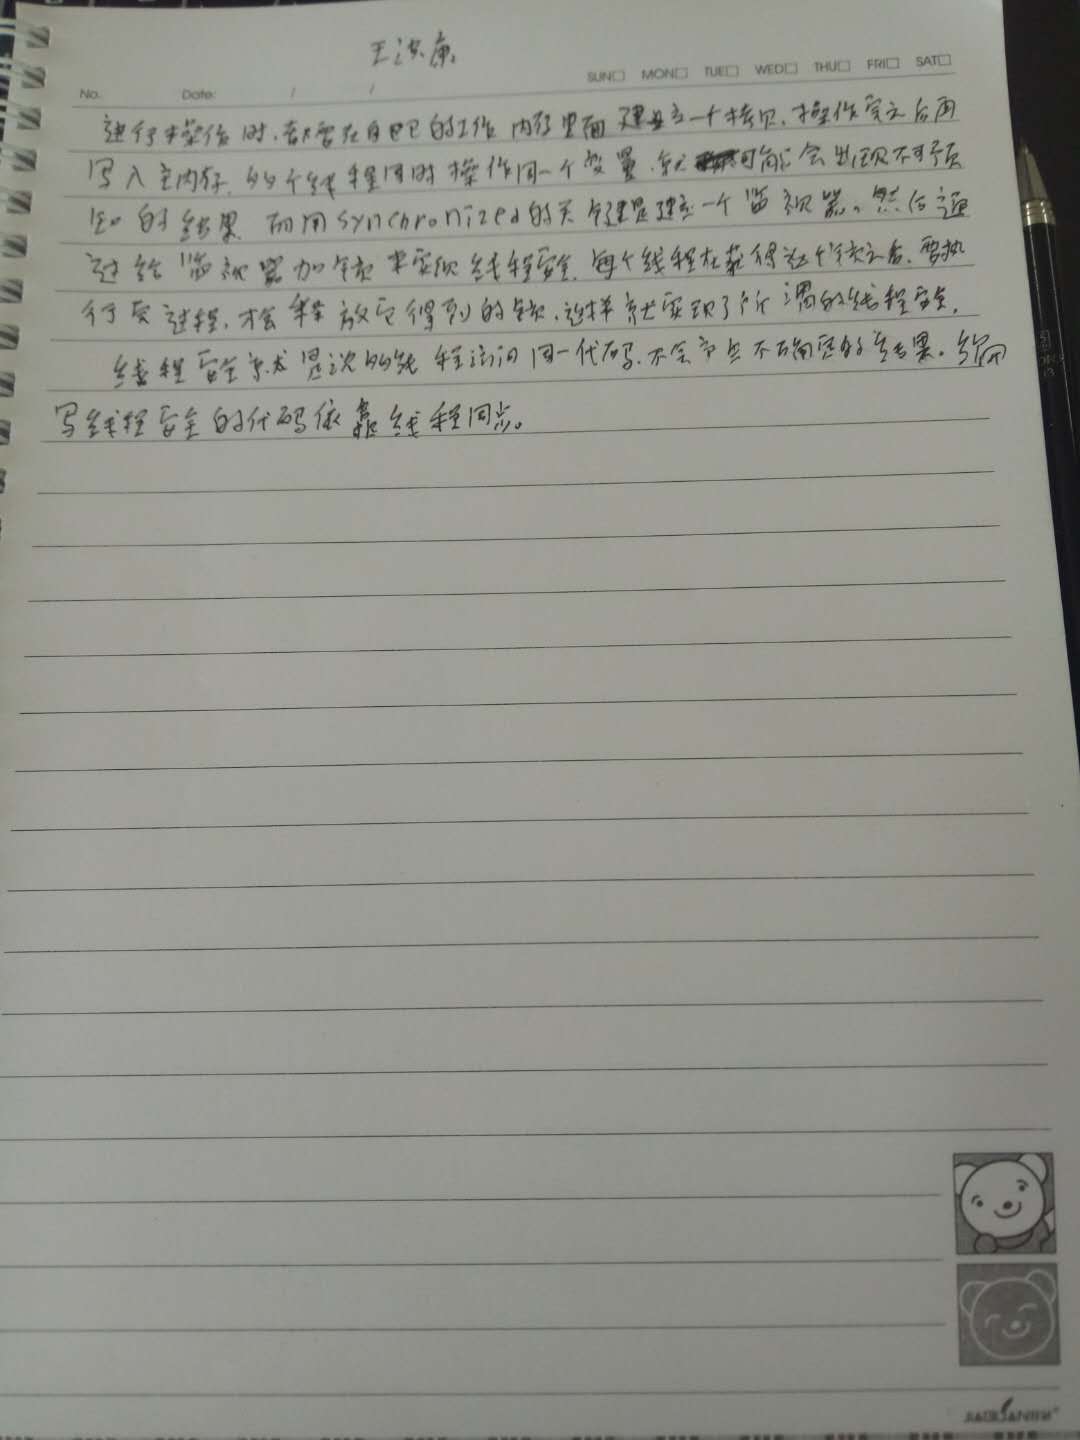 王洪康
No. Date: / / SUN□ MON□ TUE□ WED□ THU□ FRI□ SAT□
进行操作时,都要在自己的工作内存里面建立一个拷贝,操作完之后再
写入主内存,多个线程同时操作同一个变量,就可能会出现不可预
知的结果 而用synchronized的关键是建立一个监视器。然后通
过给监视器加锁来实现线程安全,每个线程在获得这个锁之后,要执
行完过程,才会释放它得到的锁,这样就实现了所谓的线程安全,
线程安全就是说多线程访问同一代码,不会产生不确定的结果。编
写线程安全的代码依靠线程同步。